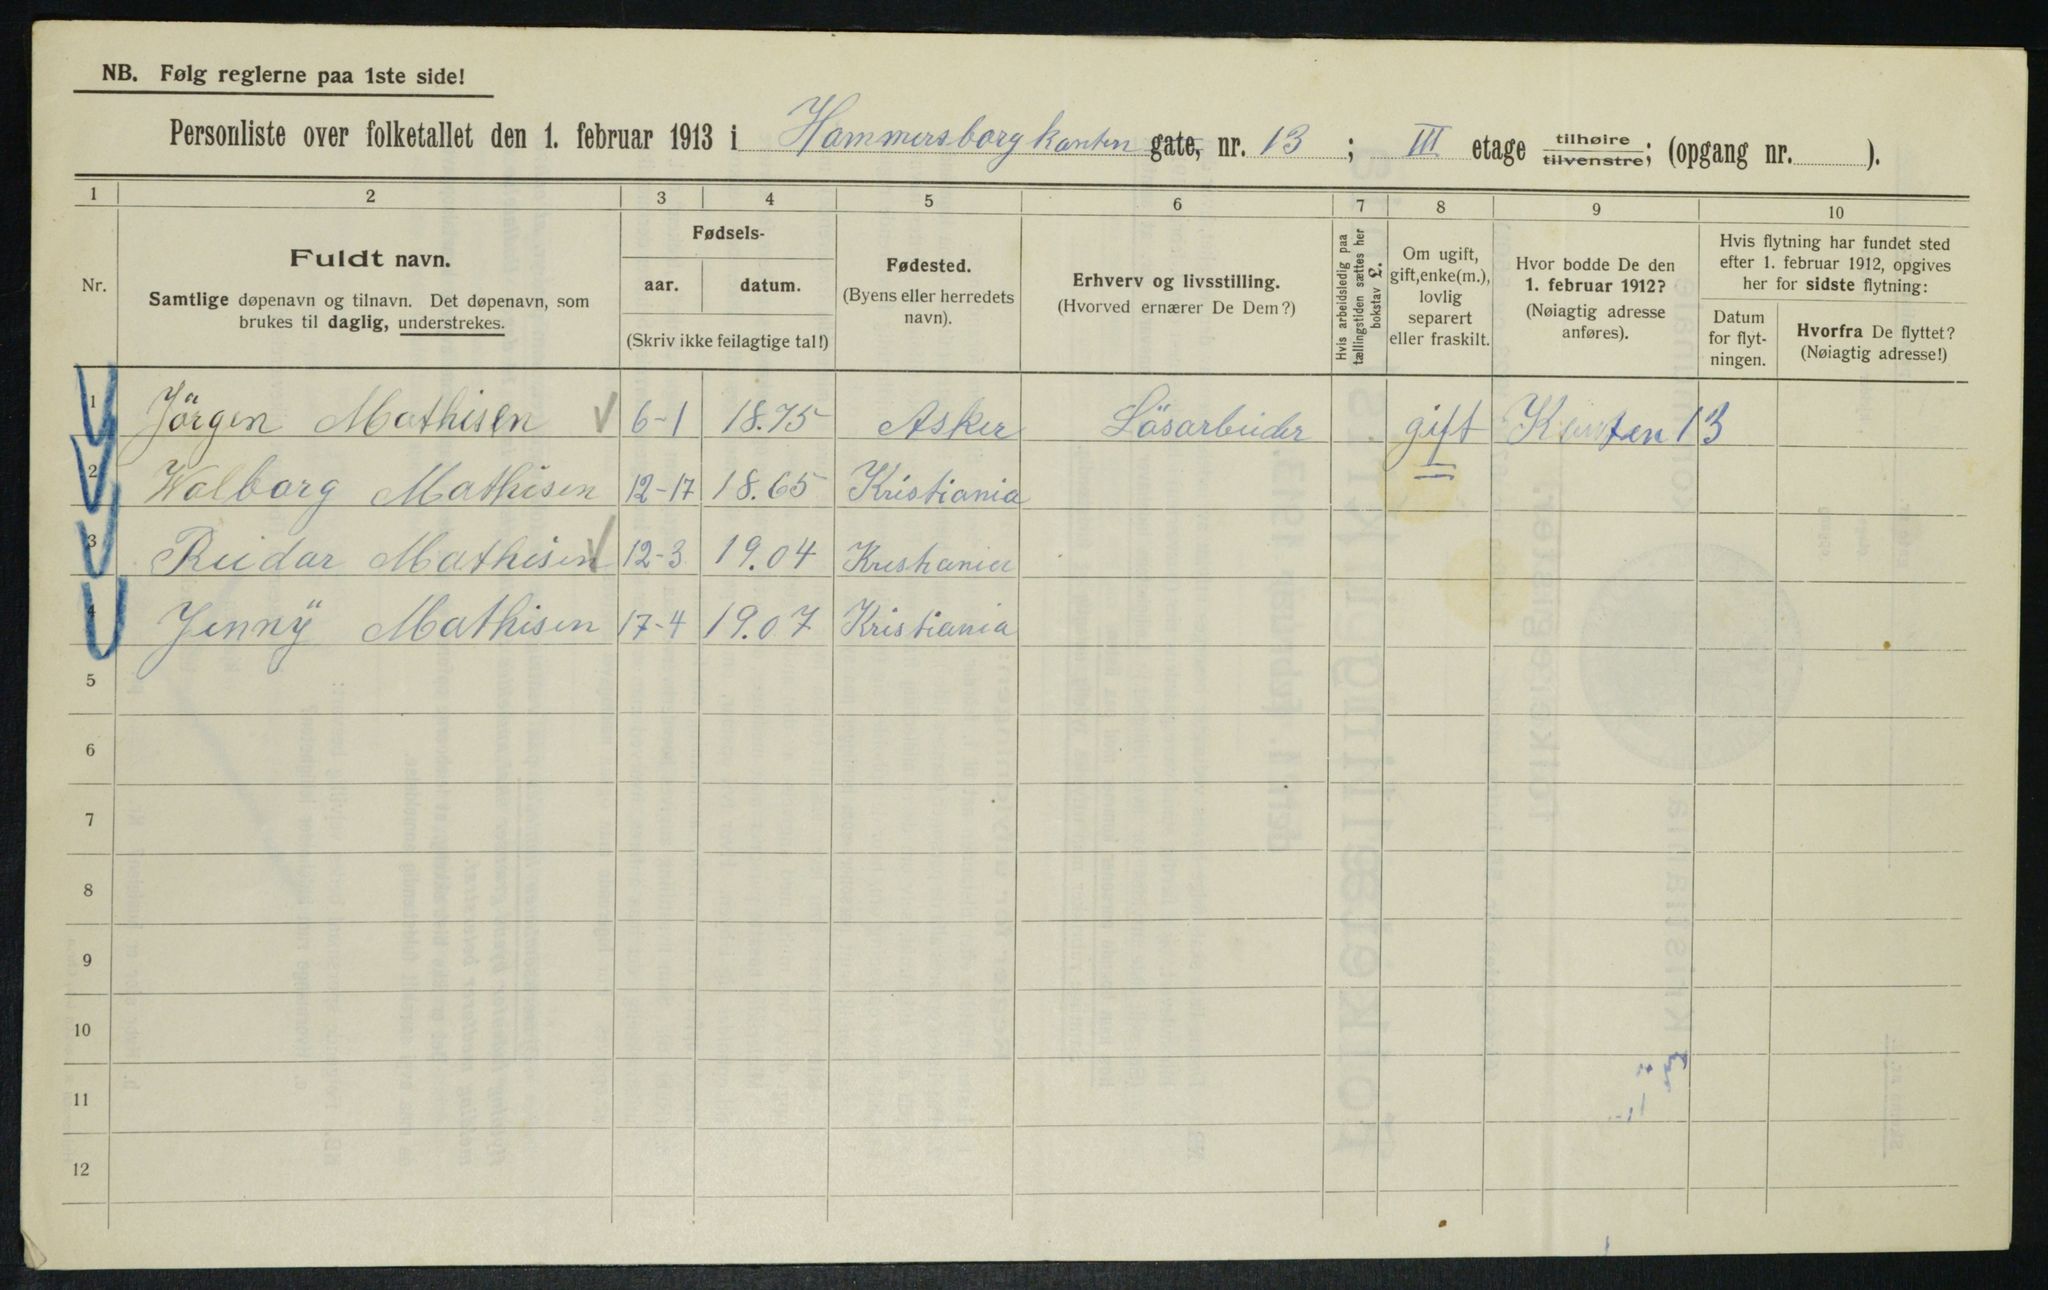 NB. Følg reglerne paa 1ste side!
Personliste over folketallet den 1. februar 1913 i Hammersborgkanten gate, nr. 13 ; III etage tilhøire tilvenstre; (opgang nr. ).
1 2 3 4 5 6 7 8 9 10
Nr.
Fuldt navn.
Samtlige døpenavn og tilnavn. Det døpenavn, som
brukes til daglig, understrekes.
Fødsels-
aar. datum.
(Skriv ikke feilagtige tal!)
Fødested.
(Byens eller herredets
navn).
Erhverv og livsstilling.
(Hvorved ernærer De Dem?)
Hvis arbeidsledig paa
tællingstiden sættes her
bokstav L.
Om ugift,
gift, enke(m.),
lovlig
separert
eller fraskilt.
Hvor bodde De den
1. februar 1912?
(Nøiagtig adresse
anføres).
Hvis flytning har fundet sted
efter 1. februar 1912, opgives
her for sidste flytning:
Datum
for flyt-
ningen.
Hvorfra De flyttet?
(Nøiagtig adresse!)
1 Jörgen Mathisen 6-1 18.75 Asker Lösarbeider gift Kanten 13
2 Walborg Mathisen 12-17 18.65 Kristiania =
3 Reidar Mathisen 12-3 19.04 Kristiania
4 Jenny Mathisen 17-4 19.07 Kristiania
5
6
7
8
9
10
11
12